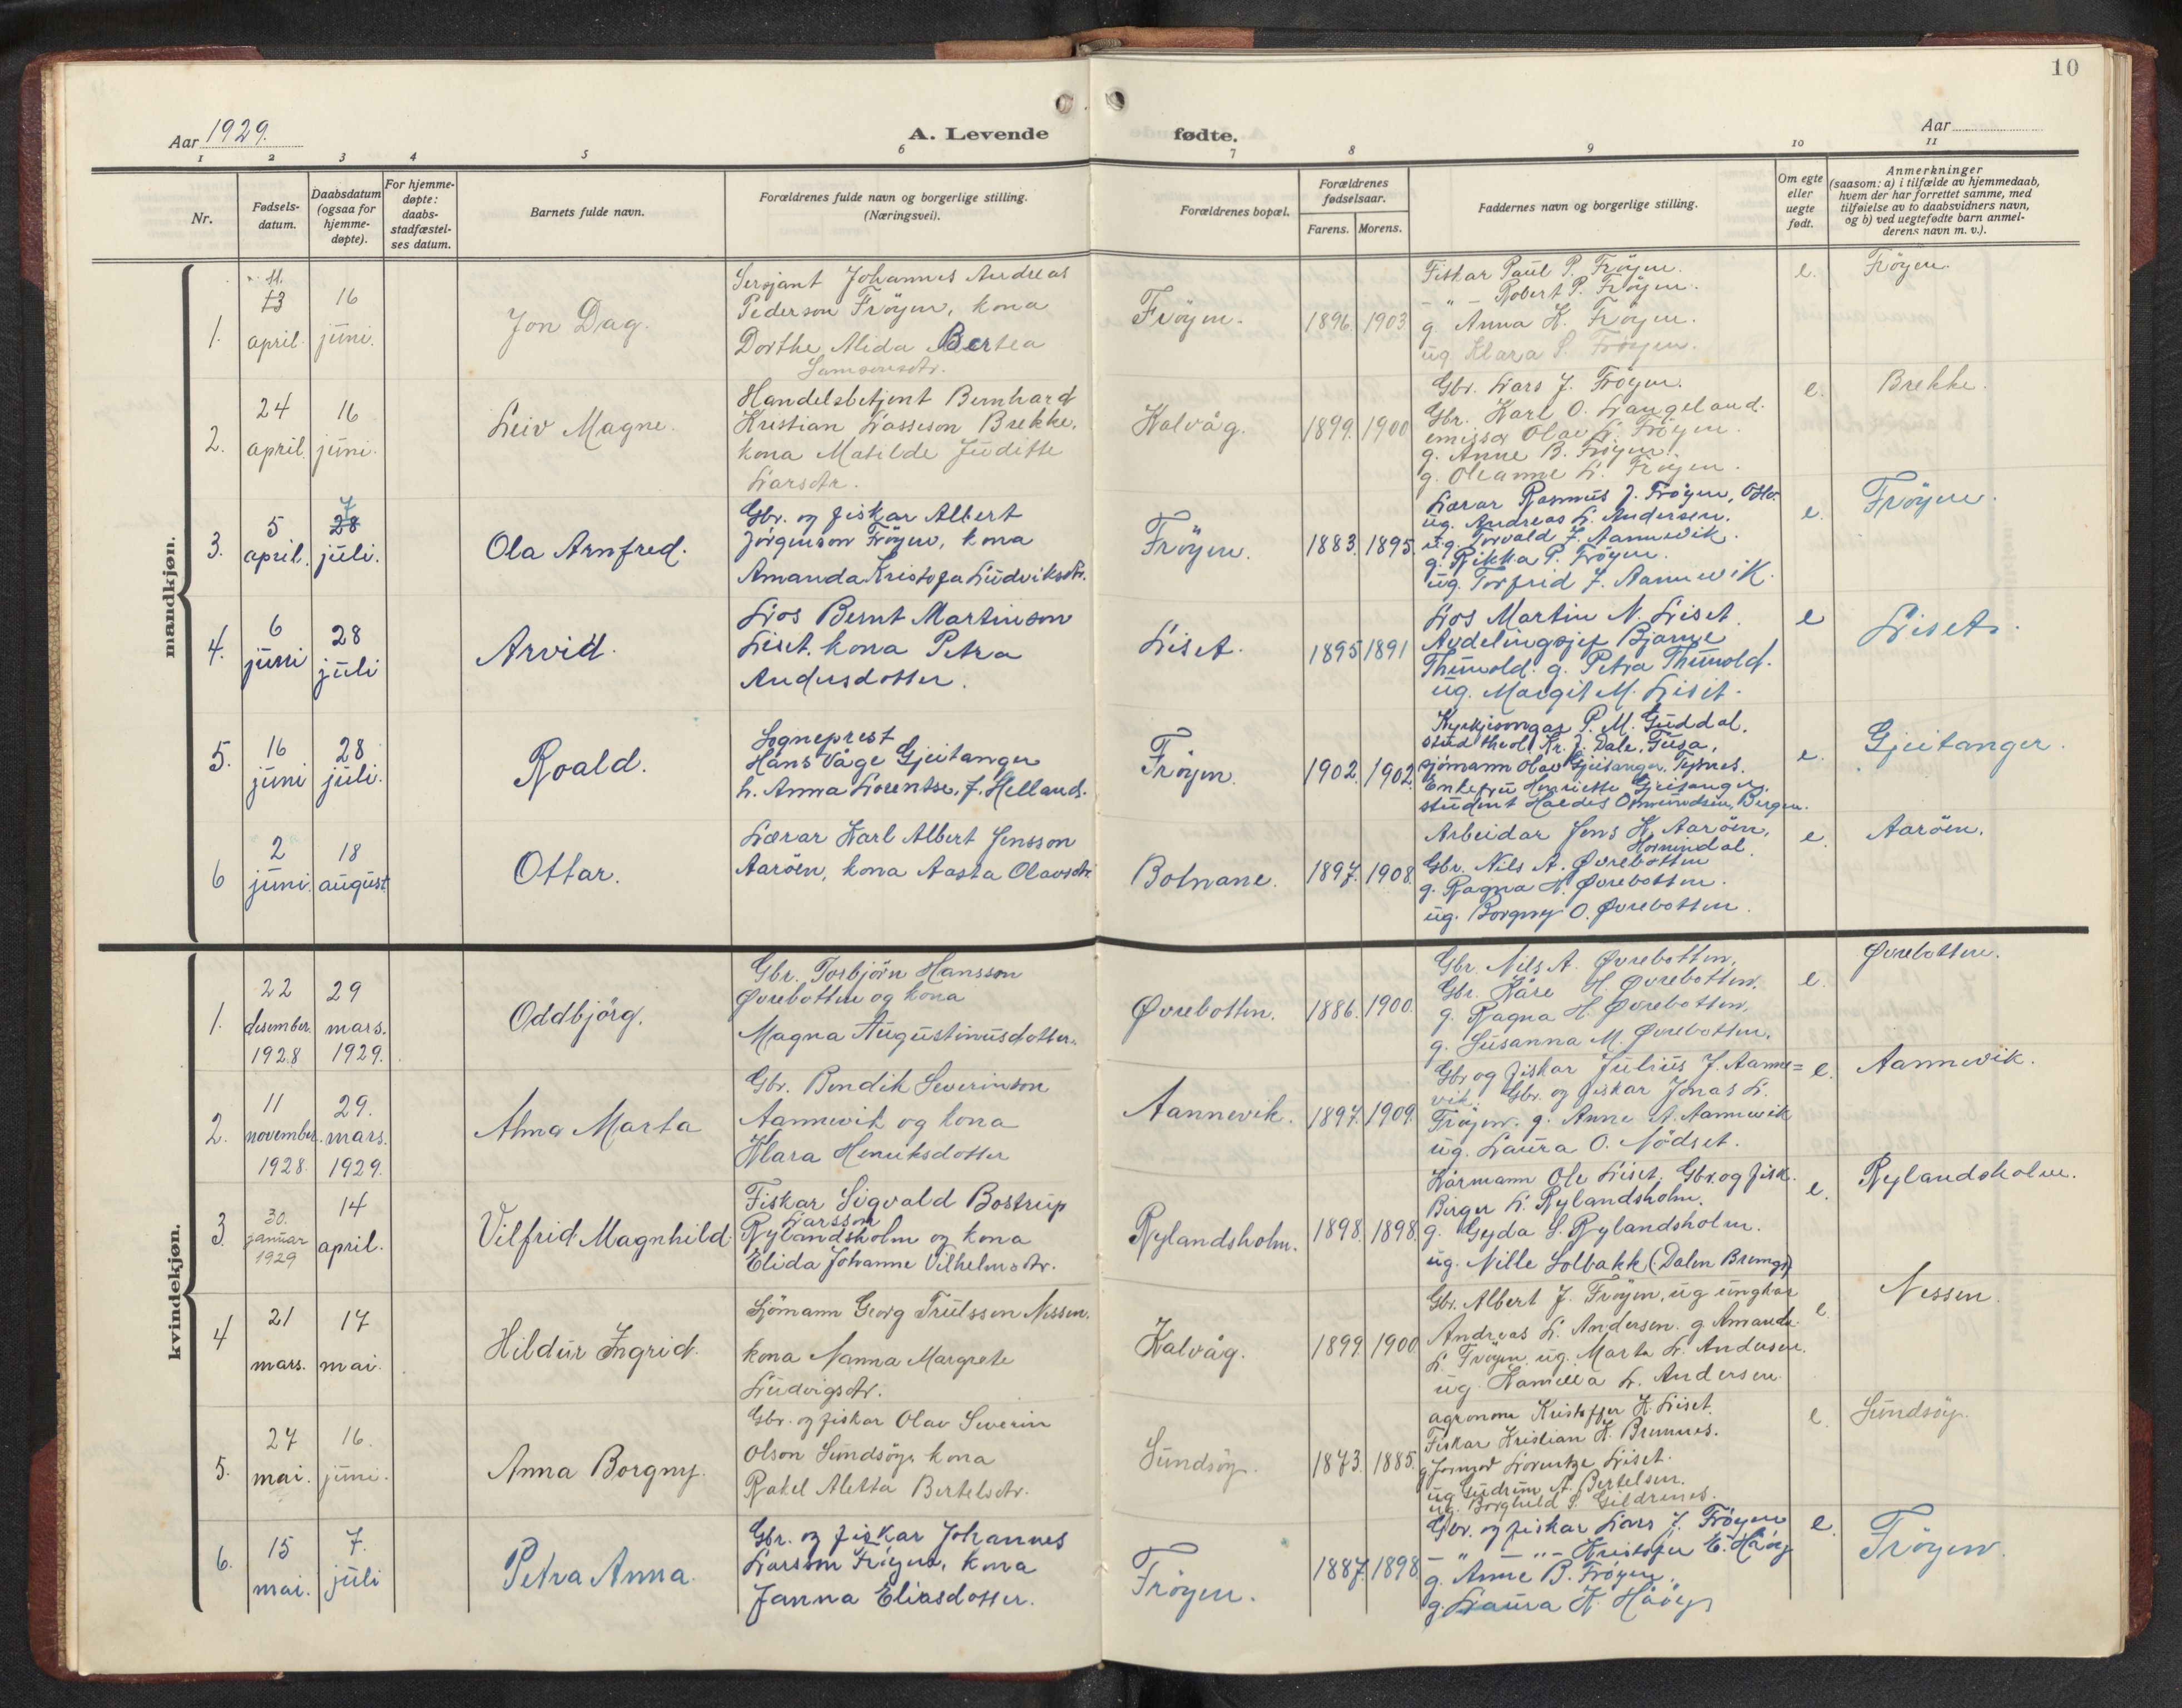 10
Aar 1929.
A. Levende fødte.
Aar
1 2 3 4 5 6 7 8 9 10 11
Nr.
Fødsels-
datum.
Daabsdatum
(ogsaa for
hjemme-
døpte).
For hjemme-
døpte:
daabs-
stadfæstel-
ses datum.
Barnets fulde navn.
Forældrenes fulde navn og borgerlige stilling.
(Næringsvei).
Forældrenes bopæl.
Forældrenes
fødselsaar.
Farens. Morens.
Faddernes navn og borgerlige stilling.
Om egte
eller
uegte
født.
Anmerkninger
(saasom: a) i tilfælde av hjemmedaab,
hvem der har forrettet samme, med
tilføielse av to daabsvidners navn,
og b) ved uegtefødte barn anmel-
derens navn m. v.).
mandkjøn.
1.
11.
13
april.
16
júni.
Jon Dag.
Sersjant Johannes Andreas
Pederson Fröyen, kona
Dorthe Alida Bertea
Samsonsdtr.
Fröyen.
1896. 1903
Fiskar Paul P. Fröyen.
- " - Robert P. Fröyen.
g. Anna K. Fröyen.
ug. Klara S. Fröyen.
e.
Fröyen.
2.
24
april.
16
júni.
Leiv Magne.
Handelsbetjent Bernhard
Kristian Lasseson Brekke,
kona Matilde Júditte
Larsdtr.
Kalvåg.
1899. 1900
Gbr. Lars J. Fröyen.
Gbr. Karl O. Langeland.
emissær Olav L. Fröyen.
g. Anne B. Fröyen.
g. Oleanne L. Fröyen.
e.
Brekke.
3.
5
april.
28
7
júli.
Ola Arnfred.
Gbr. og fiskar Albert
Jörgenson Fröyen, kona
Amanda Kristofa Lúdviksdtr.
Fröyen.
1883. 1895.
Lærar Rasmus J. Fröyen, Oslo.
ug. Andreas L. Andersen.
ug. Torvald J. Aannevik.
g. Rikka P. Fröyen.
ug. Torfrid J. Aannevik.
e.
Fröyen.
4.
6
júni
28
júli
Arvid.
Los Bernt Martinson
Liset. kona Petra
Andersdotter.
Liset.
1895 1891
Los Martin N. Liset.
Avdelingsjef Bjarne
Thunold. g. Petra Thunold.
ug. Margit M. Liset.
e
Liset.
5.
16
júni
28
júli.
Roald.
Sogneprest
Hans Våge Gjeitanger
h. Anna Lorentse, f. Helland.
Fröyen.
1902. 1902.
Kyrkjesongar P. M. Gúddal.
stúd theol. Kr. J. Dale, Fúsa,
sjömann Olav Gjeitanger, Tysnes.
Enkefrú Henriette Gjeitanger,
stúdent Haldis Omundsen, Bergen.
e.
Gjeitanger.
6
2
júni.
18
august
Ottar.
Lærar Karl Albert Jensson
Aaröen, kona Aasta Olavsdtr
Botnane.
1897. 1908.
Arbeidar Jens K. Aaröen,
Hornindal.
Gbr. Nils A. Øvrebotten
g. Ragna H. Øvrebotten.
ug. Borgny O. Øvrebotten.
e.
Aaröen.
kvindekjøn.
1.
22
desember.
1928
29
mars.
1929.
Oddbjörg.
Gbr. Torbjörn Hansson
Øvrebotten og kona
Magna Augustinusdotter.
Øvrebotten.
1886. 1900.
Gbr. Nils A. Øvrebotten,
Gbr. Kåre H. Øvrebotten.
g. Ragna H. Øvrebotten,
g. Súsanna M. Øvrebotten.
e.
Øvrebotten.
2.
11
november.
1928.
29.
mars.
1929.
Alma Marta
Gbr. Bendik Severinson
Aannevik og kona
Klara Henriksdotter
Aannevik.
1897. 1909.
Gbr og fiskar Július J. Aanne=
vik. Gbr. og fiskar Jonas L.
Fröyen. g. Anne A. Aannevik
ug. Laúra O. Nödset.
e.
Aannevik.
3.
30.
januar
1929
14
april.
Vilfrid Magnhild
Fiskar Sigvald Bostrup
Larsson
Rylandsholm og kona
Elida Johanne Vilhelmsdtr.
Rylandsholm.
1898. 1898.
Kårmann Ole Liset. Gbr. og fisk.
Birger L. Rylandsholm.
g. Gyda S. Rylandsholm.
ug. Nille Solbakk (Dalen Bremgr)
e.
Rylandsholm.
4
21
mars.
17
mai.
Hildúr Ingrid.
Sjömann Georg Trúlsson Nessen.
kona Nanna Margrete
Lúdvigsdtr.
Kalvåg.
1899 1900
Gbr. Albert J. Fröyen, ug ungkar
Andreas L. Andersen. g Amanda
L. Fröyen. ug. Marta L. Andersen.
ug. Kamilla L. Andersen.
e.
Nessen.
5.
27
mai.
16.
júni.
Anna Borgny.
Gbr. og fiskar Olav Severin
Olson Súndsöy, kona
Rakel Aletta Bertelsdtr.
Súndsöy.
1873. 1885.
agronom Kristoffer K. Liset.
Fiskar Kristian K. Bremnes.
g. Jormod Lorentze Liset.
ug. Gúdrún A. Bertelsen.
ug. Borghild S. Gildrenes.
e.
Súndsöy.
6.
15
mai.
7.
júli
Petra Anna.
Gbr. og fiskar Johannes
Larsson Fröyen, kona
Janna Eliasdotter.
Fröyen.
1887. 1898
Gbr. og fiskar Lars J. Fröyen
- " - " - Kristofer E. Håöy
g. Anne B. Fröyen.
g. Laúra K. Håöy
e.
Fröyen.